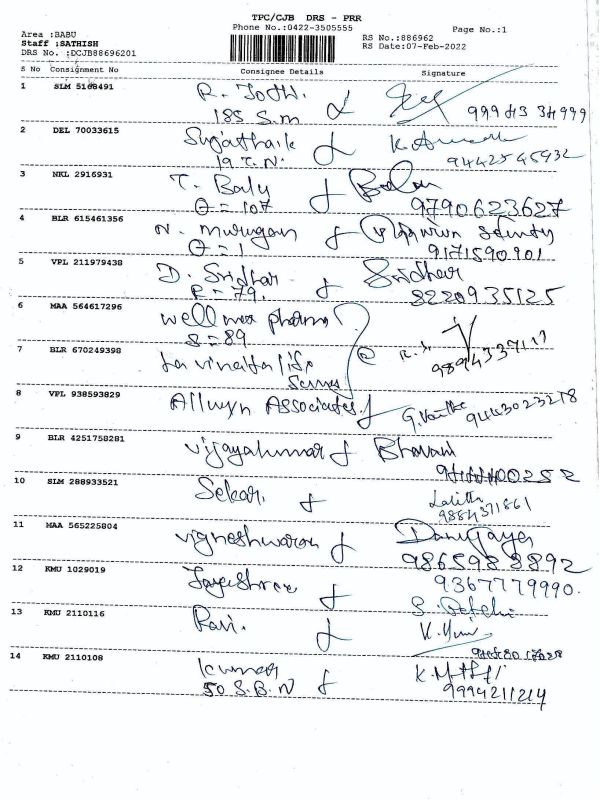 TPC/CJB DRS - PRR
Phone No.:0422-3505555
Page No.:1
Area :BABU
RS No.:886962
Staff :SATHISH
RS Date:07-Feb-2022
DRS No. :DCJB88696201
S No Consignment No Consignee Details Signature
1 SLM 5168491 R. Jothi.
185 S.m
2 DEL 70033615 Sujatha
19 T.N. 9442545932
3 NKL 2916931 T. Balu
= 107 9790623627
4 BLR 615461356 N. Murugan
= 1 9171590901
5 VPL 211979438 D. Sridhar Sridhar
R = 79. 8220935125
6 MAA 564617296 Well max pharma
S = 89
7 BLR 670249398
8 VPL 938593829 Allwyn Associates.
9443023278
9 BLR 4251758281 Vijayakumar Bhavani
10 SLM 288933521 Sekar. Lalitha
9884371861
11 MAA 565225804 Vigneshwaran
9865983892
12 KMU 1029019 Jayashree 9367779990.
13 KMU 2110116 Ravi.
14 KMU 2110108 Kumar
50 S.B.N 9994211214